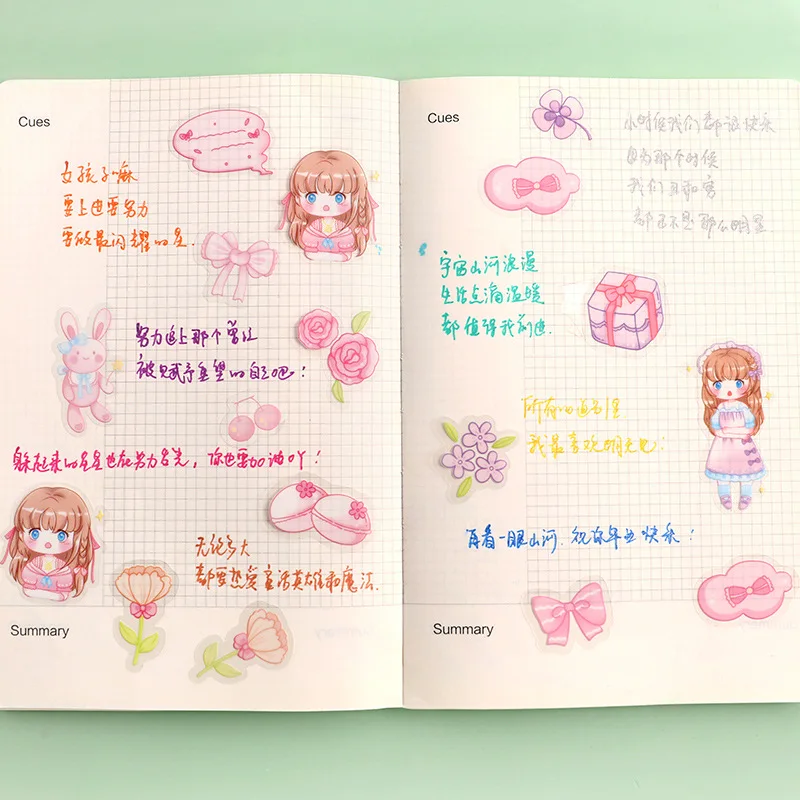 Cues
女孩子嘛
要上也要努力
要做最闪耀的星.
努力追上那个曾经
被赋予重望的自己吧!
躲起来的星星也在努力发光,你也要加油吖!
无论多大
都要热爱童话英雄和魔法.
Summary
Cues
小时候我们都很快乐
因为那个时候
我们
都还不是那么明显
宇宙山河浪漫
生活点滴温暖
都值得我前进.
所有的道别里
我最喜欢明天见!
再看一眼山河.祝你毕业快乐!
Summary